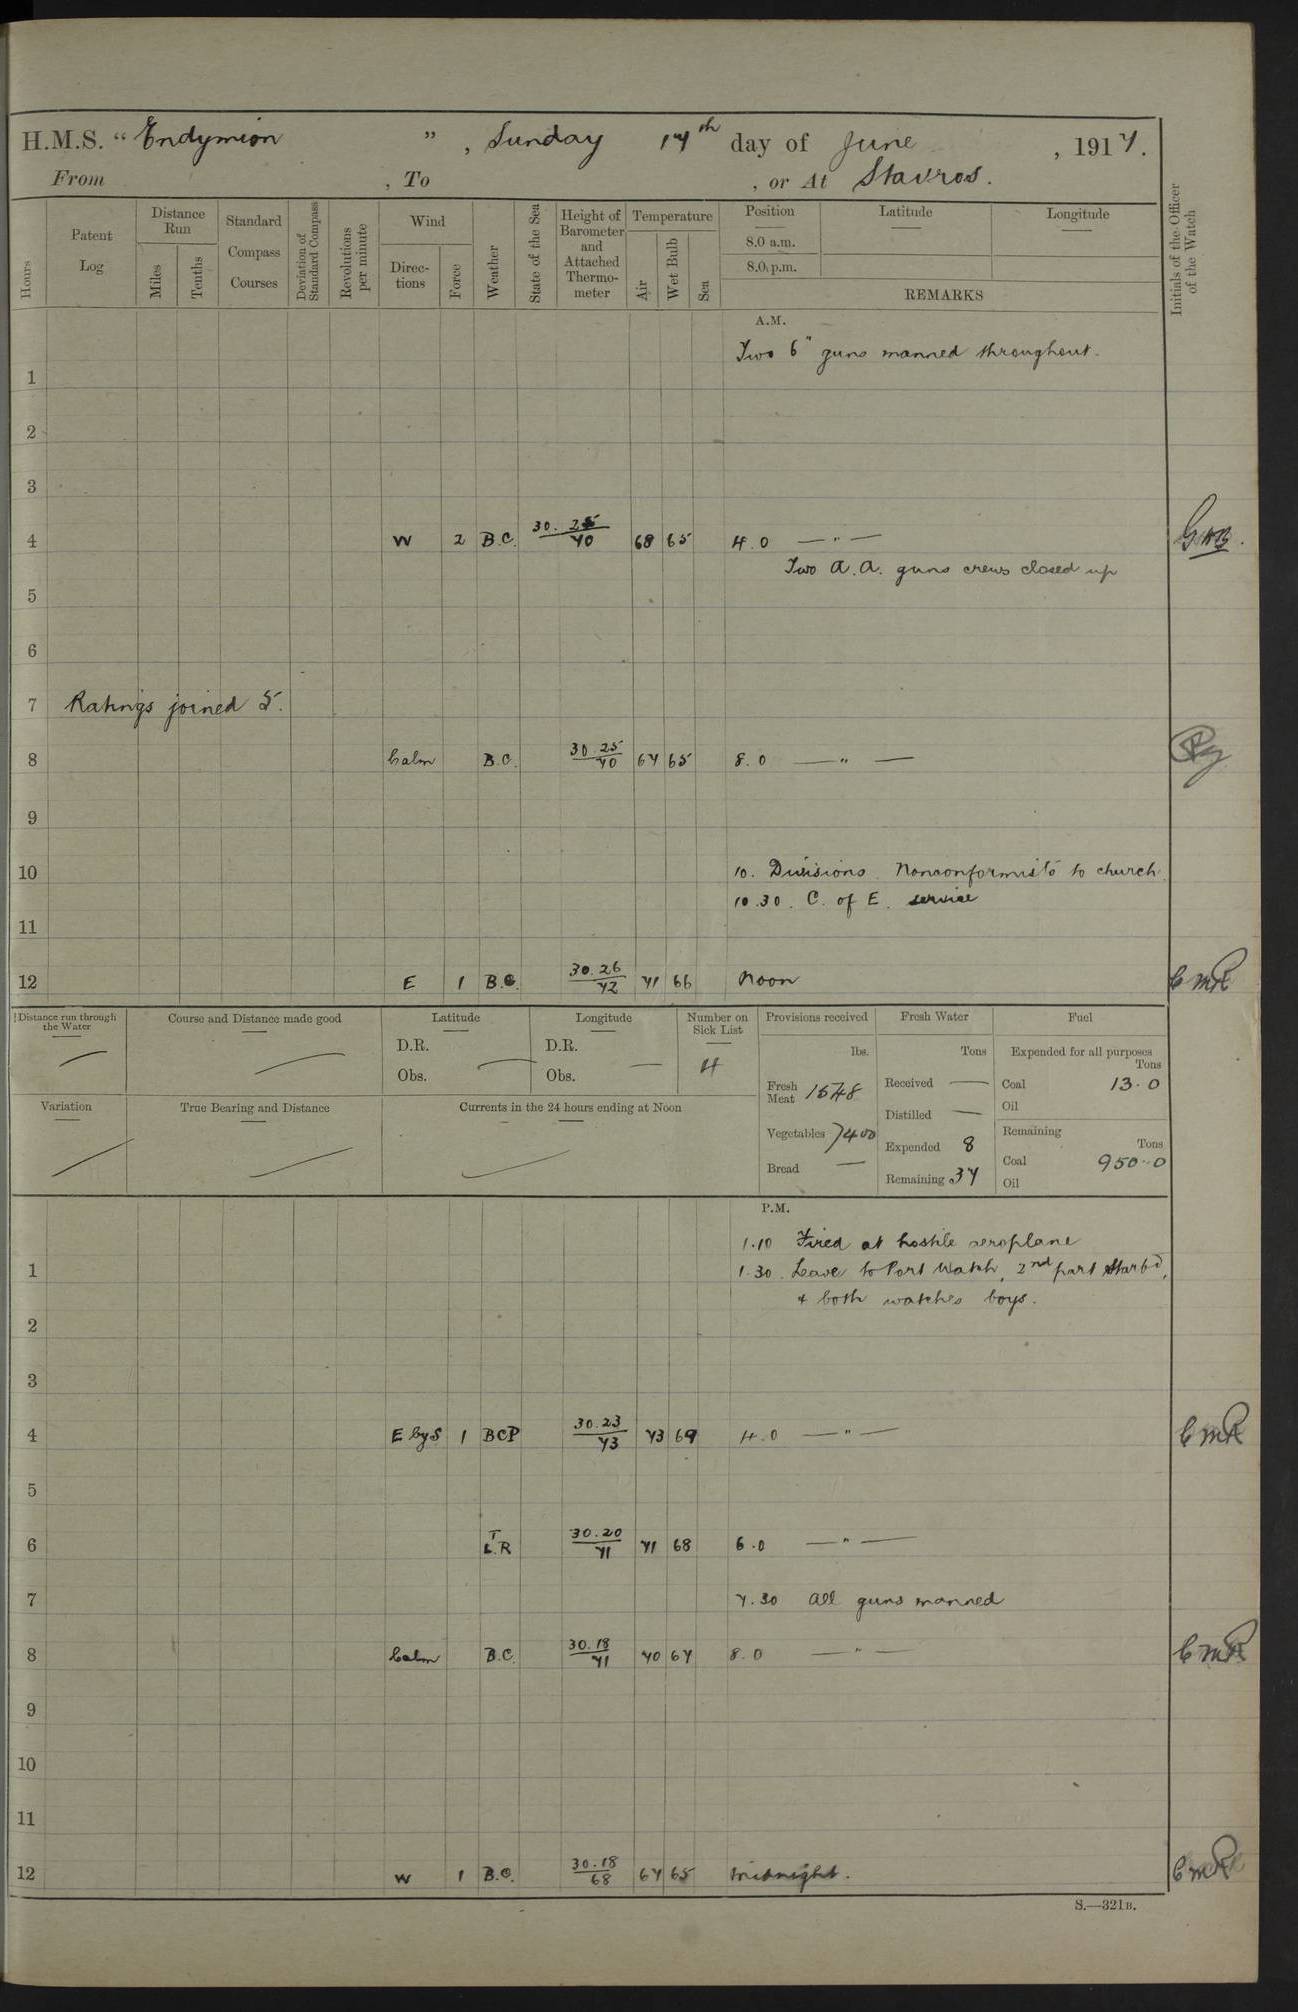 H.M.S. " Endymion " , Sunday 17th day of June , 1917.
From , To , or At Stavros.
Hours
Patent Log
Distance Run
Miles
Tenths
Standard Compass Courses
Deviation of Standard Compass
Revolutions per minute
Wind
Directions
Force
Weather
State of the Sea
Height of Barometer and Attached Thermometer
Temperature
Air
Wet Bulb
Sea
Position
8.0 a.m.
8.0 p.m.
Latitude
Longitude
REMARKS
Initials of the Officer of the Watch
A.M.
Two 6" guns manned throughout.
1
2
3
4 W 2 B.C. 30.25 70 68 65 4.0 — " —
Two A.A. guns crews closed up
5
6
7 Ratings joined 5.
8 Calm B.C. 30.25 70 67 65 8.0 — " —
9
10 10. Divisions. Nonconformists to church.
10.30. C. of E. service
11
12 E 1 B.C. 30.26 72 71 66 Noon CMR
Distance run through the Water
Course and Distance made good
Latitude
D.R.
Obs.
Longitude
D.R.
Obs.
Number on Sick List
4
Provisions received
lbs.
Fresh Meat 1548
Vegetables 7400
Bread —
Fresh Water
Tons
Received —
Distilled —
Expended 8
Remaining 37
Fuel
Expended for all purposes
Tons
Coal 13.0
Oil
Remaining
Tons
Coal 950.0
Oil
Variation
True Bearing and Distance
Currents in the 24 hours ending at Noon
P.M.
1.10 Fired at hostile aeroplane
1 1.30. Leave to Port Watch, 2nd part Starbd,
& both watches boys.
2
3
4 E by S 1 BCP 30.23 73 73 69 4.0 — " — CMR
5
6 T L.R 30.20 71 71 68 6.0 — " —
7 7.30 All guns manned
8 Calm B.C. 30.18 71 70 67 8.0 — " — CMR
9
10
11
12 W 1 B.C. 30.18 68 67 65 Midnight. CMR
S.—321B.